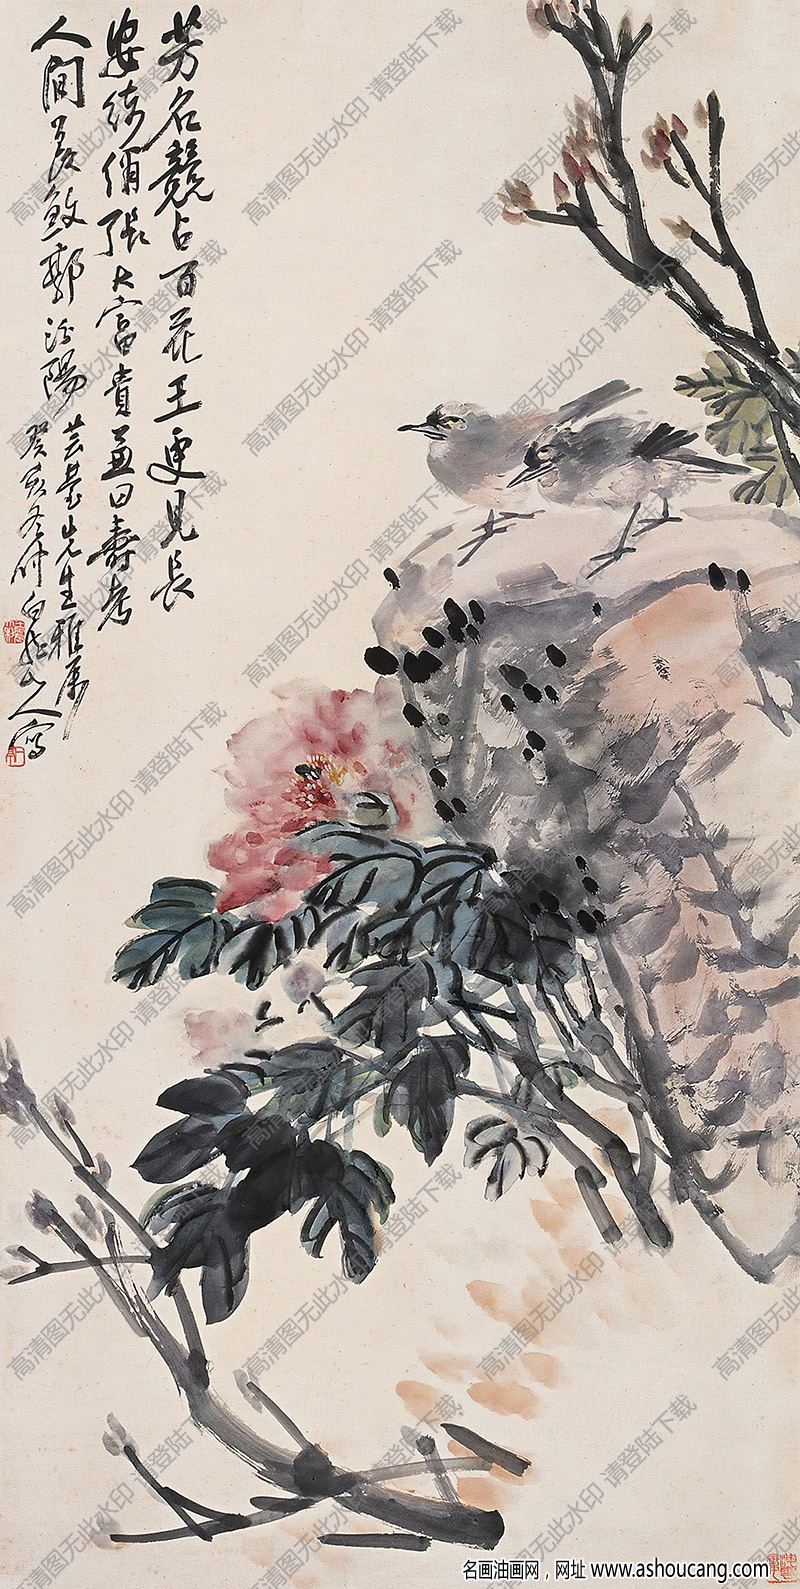 芳名競占百花王更見長
安 張大富貴 壽考
人間羨 郭汾陽
芸臺先生雅屬
癸亥冬 白龍山人寫
高清图无此水印 请登陆下载
名画油画网，网址 www.ashoucang.com